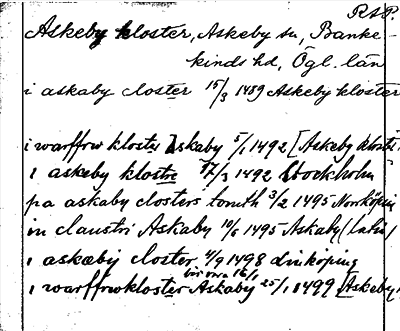 RAP.
Askeby kloster, Askeby sn, Banke-
kinds hd, Ögl. län
i askaby closter 15/3 1489 Askeby kloster
i warffrw kloster Askaby 5/1 1492 [Askeby kloster]
i askeby klostre 17/3 1492 Stockholm
pa askaby closters tomth 3/2 1495 Norrköping
in claustri Askaby 10/6 1495 Askaby (Latin)
i askæbij closter 4/9 1498 Linköping
bör vara 16/1
i warffrwkloster Askaby 25/1 1499 [Askeby]